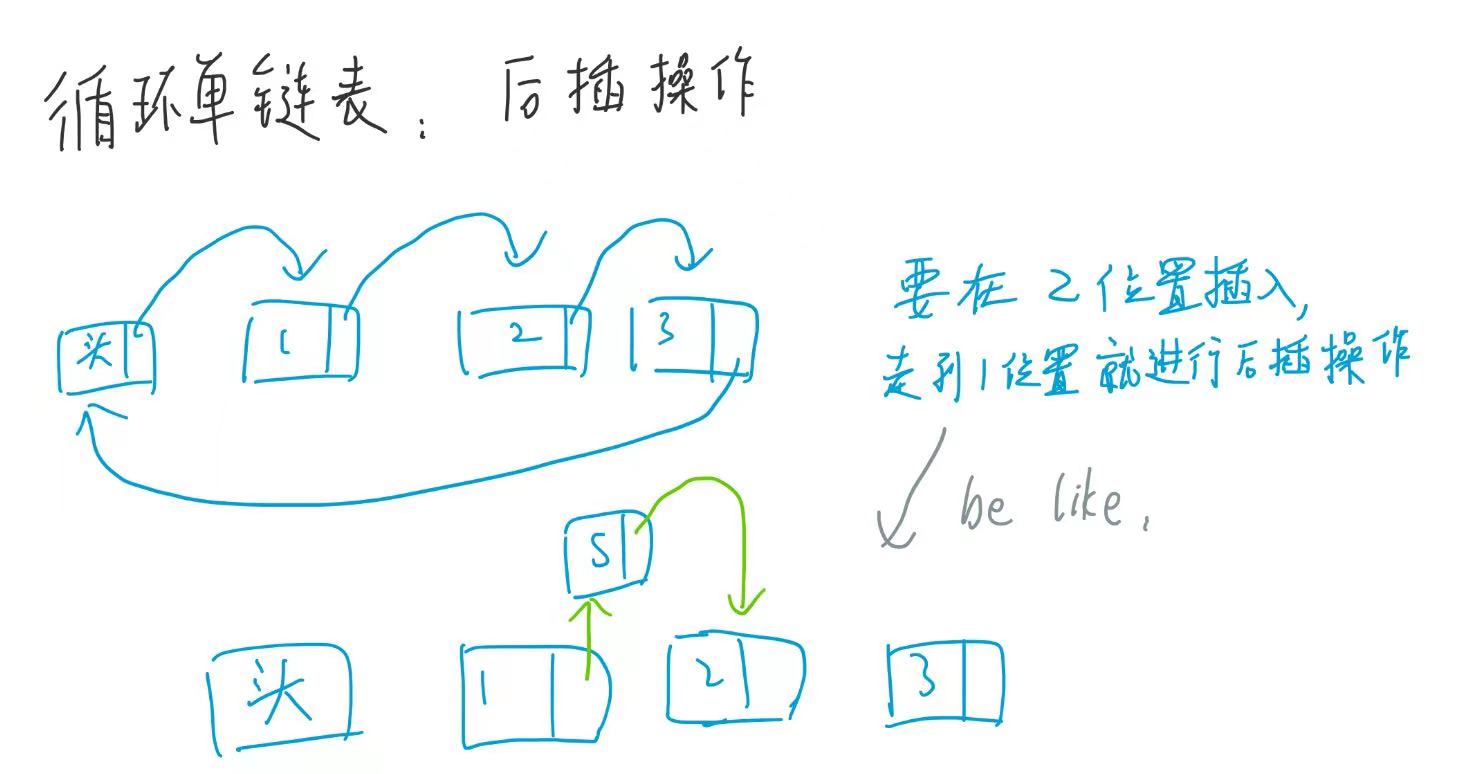 循环单链表: 后插操作
头 1 2 3
要在2位置插入,
走到1位置就进行后插操作
be like,
S
头 1 2 3